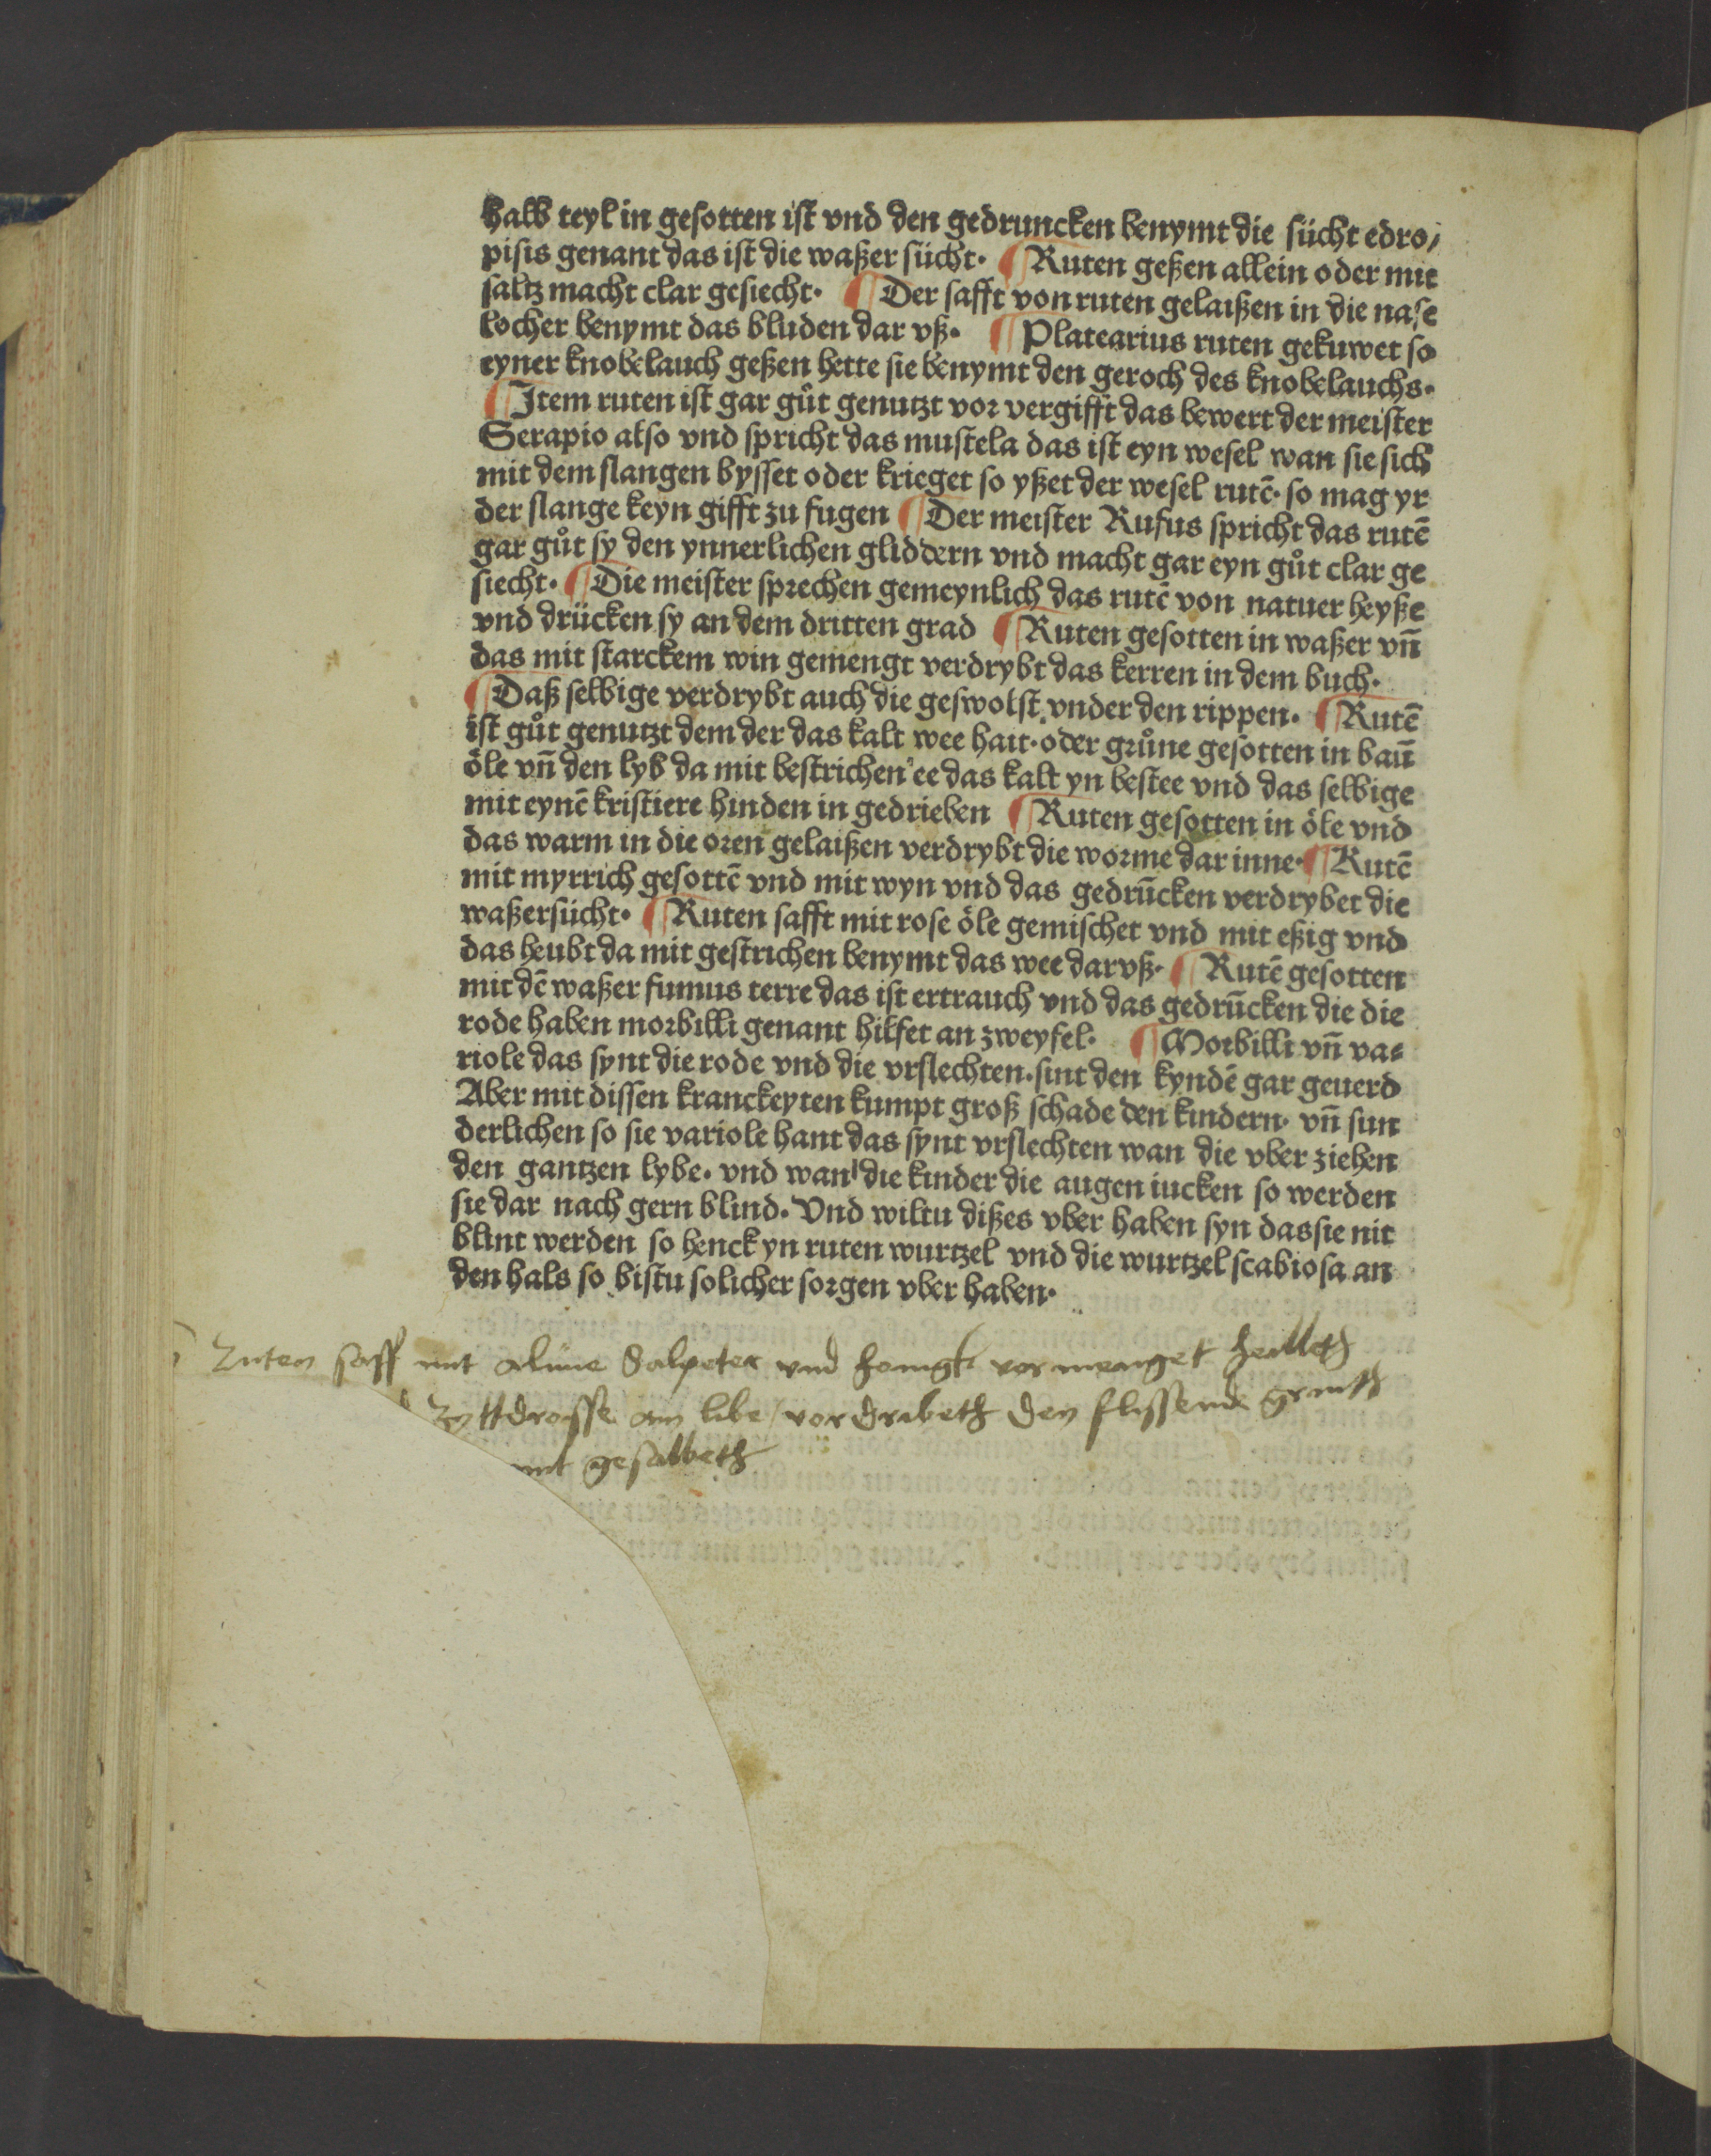 halb teyl in gesotten ist vnd den gedruncken benymt die sücht edro/
pisis genant das ist die waßer sücht· ¶ Ruten geßen allein oder mit
saltz macht clar gesiecht· ¶ Der safft von ruten gelaißen in die nase
locher benymt das bluden dar vß· ¶ Platearius ruten gekuwet so
eyner knobelauch geßen hette sie benymt den geroch des knobelauchs·
¶ Item ruten ist gar gůt genutzt vor vergifft das bewert der meister
Serapio also vnd spricht das mustela das ist eyn wesel wan sie sich
mit dem slangen bysset oder krieget so yßet der wesel rutē· so mag yr
der slange keyn gifft zu fugen ¶ Der meister Rufus spricht das rutē
gar gůt sy den ynnerlichen gliddern vnd macht gar eyn gůt clar ge
siecht· ¶ Die meister sprechen gemeynlich das rutē von natuer heyße
vnd drücken sy an dem dritten grad ¶ Ruten gesotten in waßer vn̄
das mit starckem win gemengt verdrybt das kerren in dem buch·
¶ Daß selbige verdrybt auch die geswolst vnder den rippen· ¶ Rutē
ist gůt genutzt dem der das kalt wee hait· oder grůne gesotten in bau̅
öle vn̄ den lyb da mit bestrichen ee das kalt yn bestee vnd das selbige
mit eynē kristiere hinden in gedrieben ¶ Ruten gesotten in öle vnd
das warm in die oren gelaißen verdrybt die worme dar inne· ¶ Rutē
mit myrrich gesottē vnd mit wyn vnd das gedru̅cken verdrybet die
waßersücht· ¶ Ruten safft mit rose öle gemischet vnd mit eßig vnd
das heubt da mit gestrichen benymt das wee dar vß· ¶ Rutē gesotten
mit dē waßer fumus terre das ist ertrauch vnd das gedru̅cken die die
rode haben morbilli genant hilfet an zweyfel· ¶ Morbilli vn̄ va⸗
riole das synt die rode vnd die vrslechten· sint den kyndē gar geuerd
Aber mit dissen kranckeyten kumpt groß schade den kindern· vn̄ sun
derlichen so sie variole hant das synt vrslechten wan die vber ziehen
den gantzen lybe· vnd wan die kinder die augen iucken so werden
sie dar nach gern blind· Vnd wiltu dißes vber haben syn das sie nit
blint werden so henck yn ruten wurtzel vnd die wurtzel scabiosa an
den hals so bistu solicher sorgen vber haben·
Ruten saff mit alune Salpeter vnd honigk vormenget heilleth
Zyttdrosse am libe / vordribeth den flissende grinth
mit gesalbeth